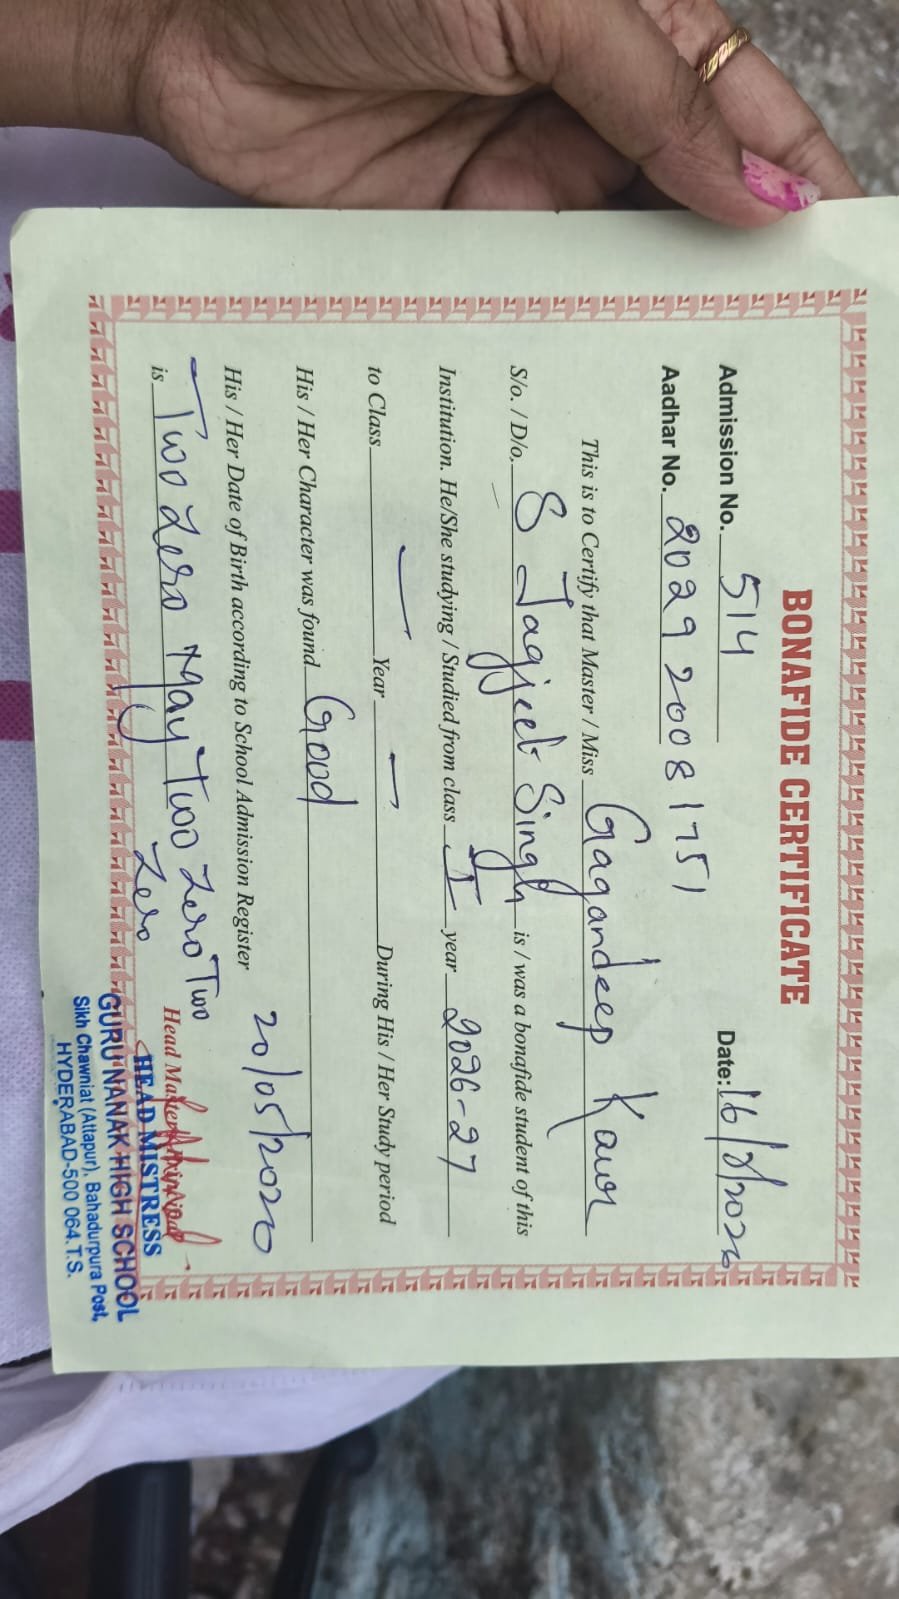 BONAFIDE CERTIFICATE
Admission No. 514 Date: 16/8/2026
Aadhar No. 2029 2008 1751
This is to Certify that Master / Miss Gagandeep Kaur
S/o. / D/o. S Jagjeet Singh is / was a bonafide student of this
Institution. He/She studying / Studied from class I year 2026-27
to Class — Year — During His / Her Study period
His / Her Character was found Good
His / Her Date of Birth according to School Admission Register 20/05/2020
is Two Zero May Two Zero Two
Zero
Head Master / Principal
HEAD MISTRESS
GURU NANAK HIGH SCHOOL
Sikh Chawniat (Attapur), Bahadurpura Post,
HYDERABAD-500 064.T.S.